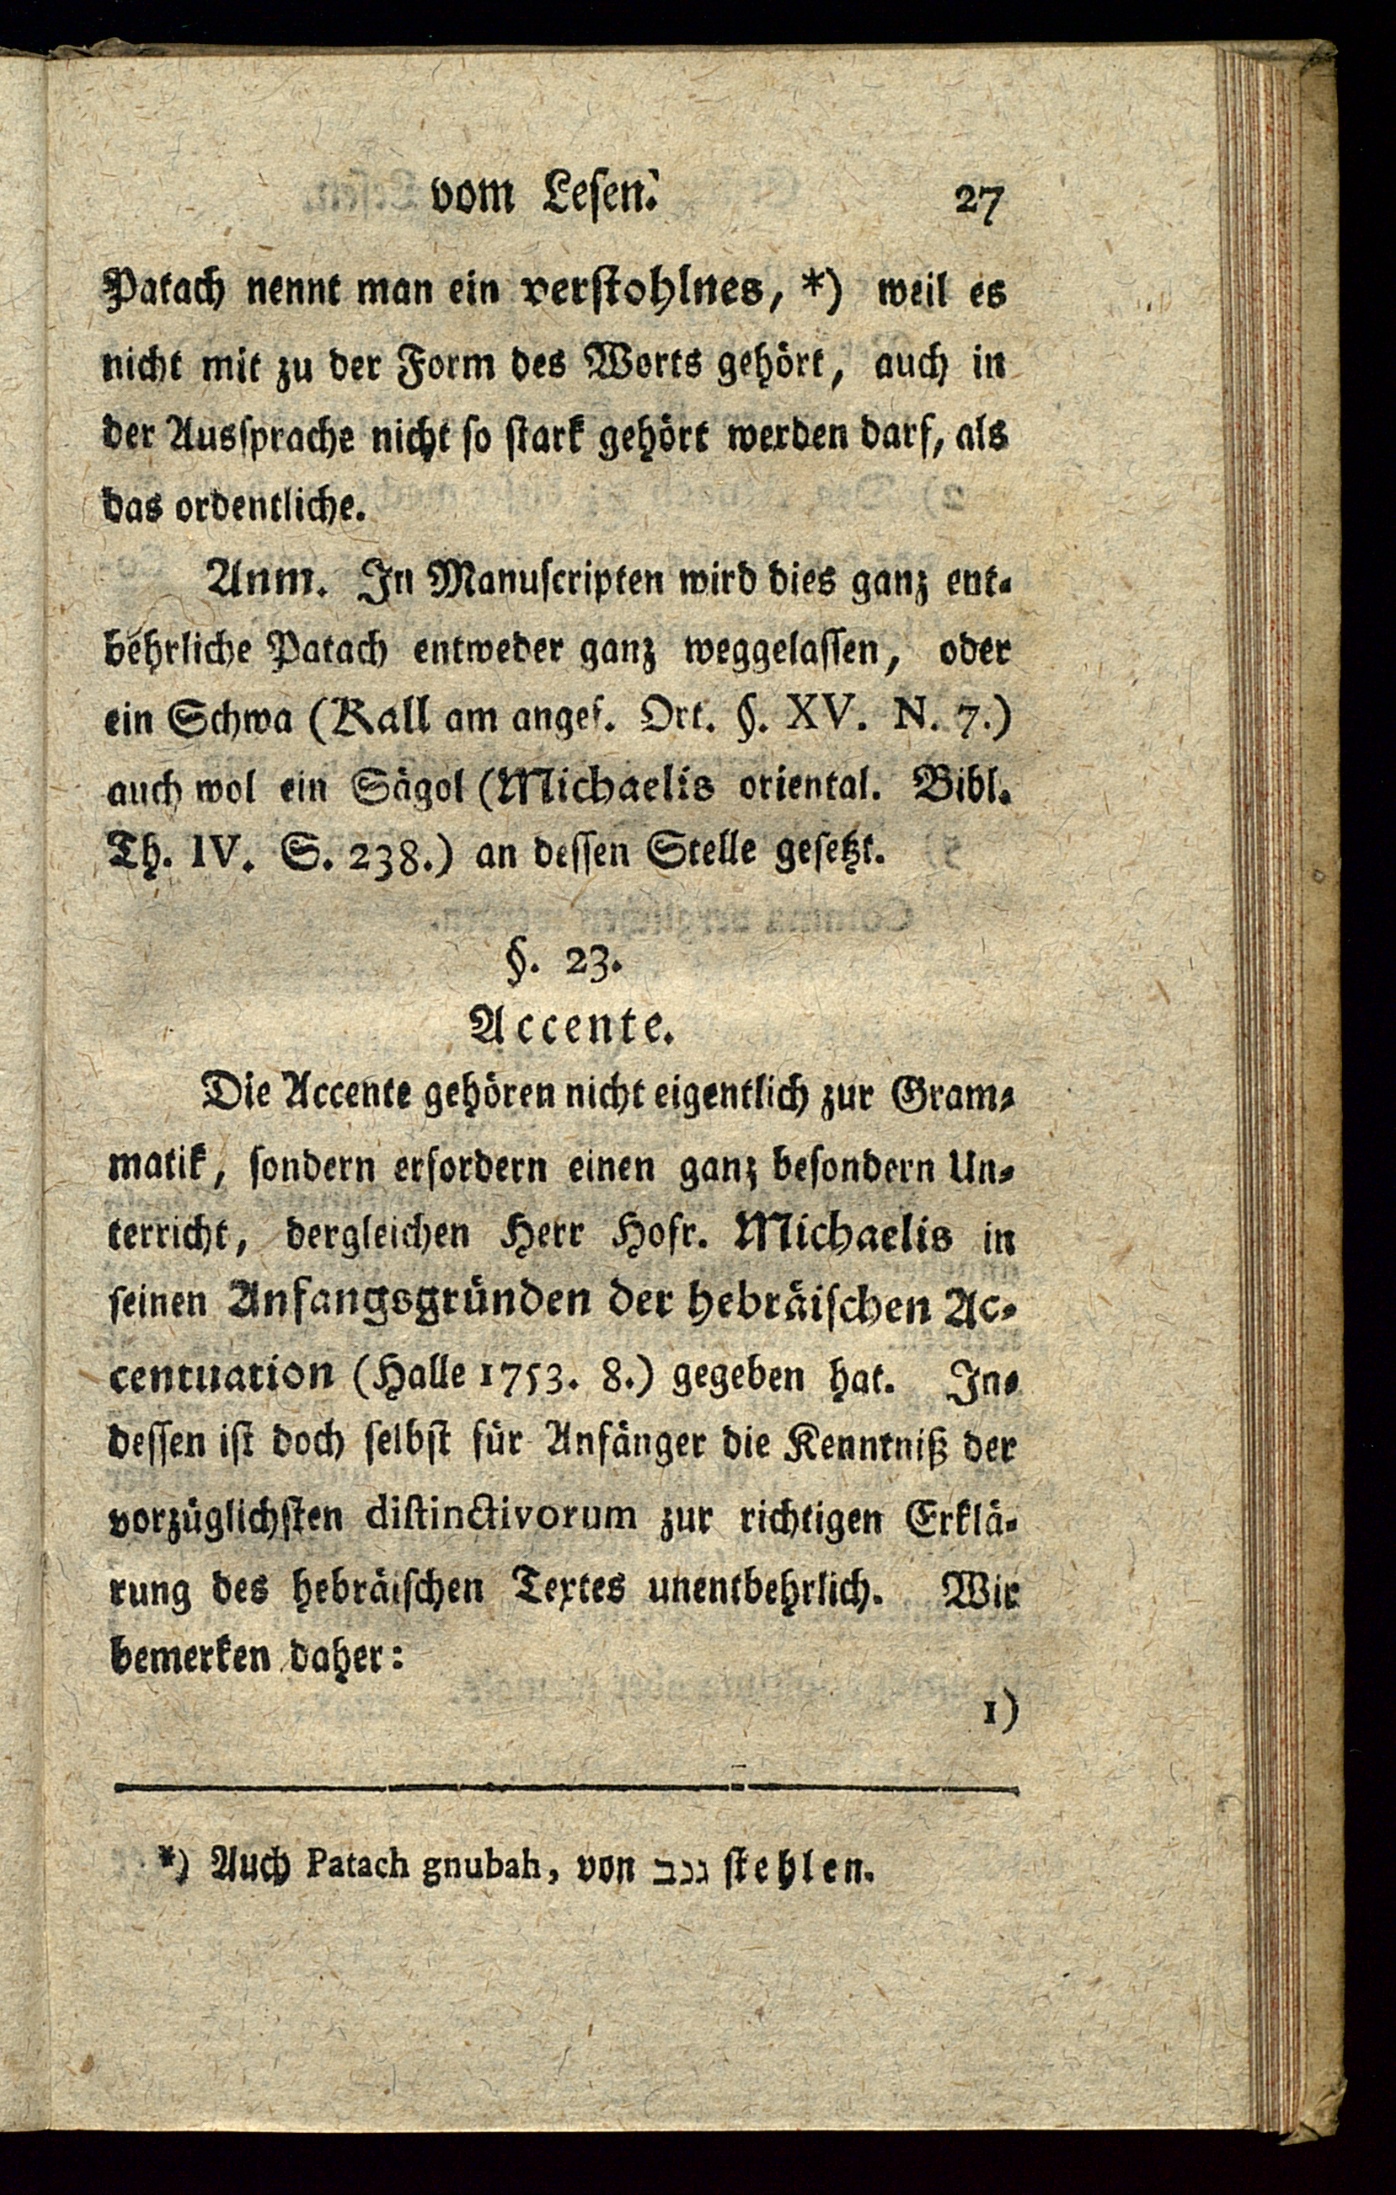 vom Lesen. 27
Patach nennt man ein verstohlnes, *) weil es
nicht mit zu der Form des Worts gehört, auch in
der Aussprache nicht so stark gehört werden darf, als
das ordentliche.
Anm. In Manuscripten wird dies ganz ent-
behrliche Patach entweder ganz weggelassen, oder
ein Schwa (Kall am angef. Ort. §. XV. N. 7.)
auch wol ein Sägol (Michaelis oriental. Bibl.
Th. IV. S. 238.) an dessen Stelle gesetzt.
§. 23.
Accente.
Die Accente gehören nicht eigentlich zur Gram-
matik, sondern erfordern einen ganz besondern Un-
terricht, dergleichen Herr Hofr. Michaelis in
seinen Anfangsgründen der hebräischen Ac-
centuation (Halle 1753. 8.) gegeben hat. In-
dessen ist doch selbst für Anfänger die Kenntniß der
vorzüglichsten distinctivorum zur richtigen Erklä-
rung des hebräischen Textes unentbehrlich. Wir
bemerken daher:
1)
*) Auch Patach gnubah, von גנב stehlen.